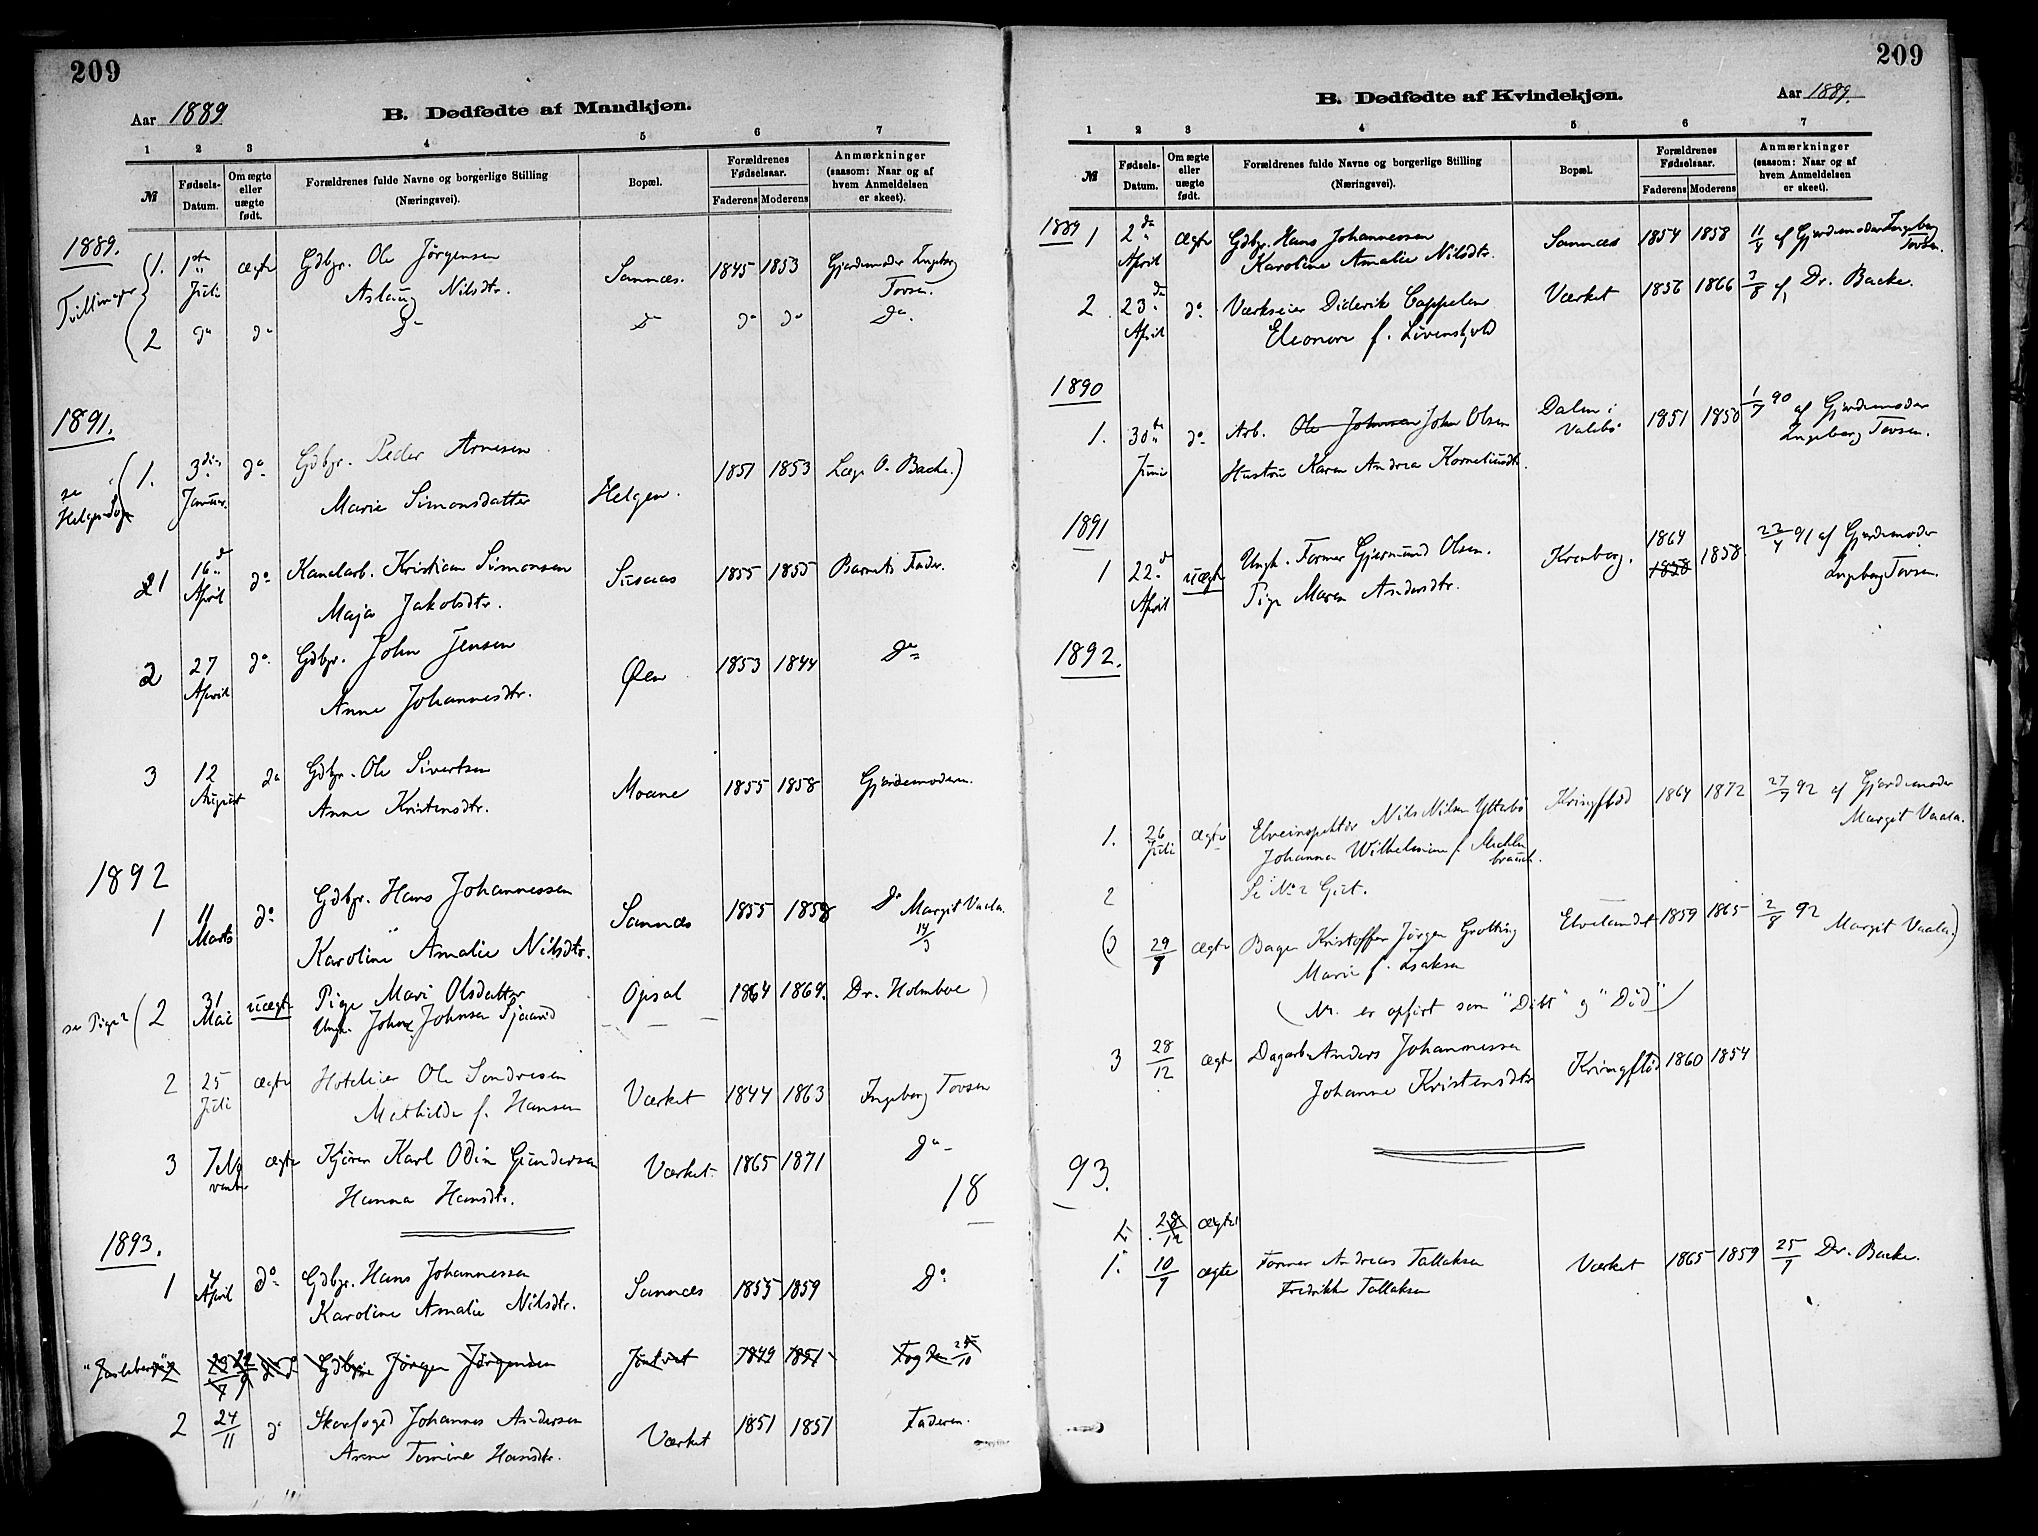 209
Aar 1889
B. Dødfødte af Mandkjøn.
1 2 3 4 5 6 7
№
Fødsels-Datum.
Om ægte eller uægte født.
Forældrenes fulde Navne og borgerlige Stilling (Næringsvei).
Bopæl.
Forældrenes Fødselsaar.
Faderens Moderens
Anmærkninger (saasom: Naar og af hvem Anmeldelsen er skeet).
1889.
Tvillinger
1. 1ste Juli ægte Gdbgr. Ole Jørgensen Sannæs. 1845 1853 Gjordemoder Ingeborg
Aslaug Nilsdtr. Tovsen.
2 do do Do Do do do Do
1891.
se Helgen Sogn
1. 3die Januar. do Gdbgr. Peder Arnesen 1851 1853 Læge O. Backe.)
Marie Simonsdatter Helgen.
1 16de April do Kanalarb. Kristian Simonsen Susaas 1855 1855 Barnets Fader.
Maja Jakobsdtr.
2 27 April do Gdbgr. John Jensen Øen 1853 1844 Do
Anne Johannesdtr.
3 12 August do Gdbgr. Ole Sivertsen Moane 1855 1858 Gjordemoderen.
Anne Kristensdtr.
1892
1 11 Marts do Gdbgr. Hans Johannessen Sannæs 1855 1858 Do Margit Vaala
Karoline Amalie Nilsdtr. 14/3
se Pige 2 (2 31 Mai uægte Pige Mari Olsdatter Opsal 1864 1869. Dr. Holmboe)
Ungk. John Johnsen
2 25 Juli ægte Hoteleier Ole Sondresen Værket 1844 1863 Ingeborg Tovsen
Mathilde f. Hansen
3 7 November ægte Kjører Karl Odin Gundersen Værket 1865 1871 Do
Hanna Hansdtr.
18
1893.
1 April do Gdbgr. Hans Johannessen Sannæs 1855 1859 Do
Karoline Amalie Nilsdtr.
Gdbgr. Jørgen Jørgensen 1849 1851
2 24/11 do Skovfoged Johannes Andersen Værket 1851 1851 Faderen.
Anne Tomine Hansdtr.
209
B. Dødfødte af Kvindekjøn.
Aar 1889.
1 2 3 4 5 6 7
№
Fødsels-Datum.
Om ægte eller uægte født.
Forældrenes fulde Navne og borgerlige Stilling (Næringsvei).
Bopæl.
Forældrenes Fødselsaar.
Faderens Moderens
Anmærkninger (saasom: Naar og af hvem Anmeldelsen er skeet).
1889
1 2den April ægte Gdbgr. Hans Johannessen Sannæs 1854 1858 11/4 af Gjordemoder Ingeborg
Karoline Amalie Nilsdtr. Tovsen.
2 23de April do Værkseier Diderik Cappelen Værket 1856 1866 3/8 af Dr. Backe.
Eleonore f. Løvenskjold
1890
1. 30te Juni do Arb. Ole Johnsen John Olsen Dalen i Valebø 1851 1850 1/7 90 af Gjordemoder
Hustru Karen Andrea Korneliusdtr. Ingeborg Tovsen.
1891
1 22de April uægte Ungk. Former Gjermund Olsen. Kronborg. 1864 1858 1858 22/4 91 af Gjordemoder
Pige Maren Andersdtr. Ingeborg Tovsen.
1892.
1. 26 Juli ægte Elveinspektør Nils Nilsen Ytterbø Kringflød 1864 1872 27/7 92 af Gjordemoder
Johanna Wilhelmine f. Margit Vaala.
2 Se No 2 Gut.
29/7 ægte Bager Kristoffer Jørgen Grotting Elvelandet 1859 1865 2/8 92 Margit Vaala)
Marie f. Isaksen
(Nr. er opført som "Døbt" og "Død")
3 28/12 ægte Dagarb. Anders Johannessen Kringflød 1860 1854
Johanne Kristensdtr
93.
28/12 ægte
1. 10/7 ægte Former Andreas Tallaksen Værket 1865 1859 25/7 Dr. Backe.
Fredrikke Tallaksen